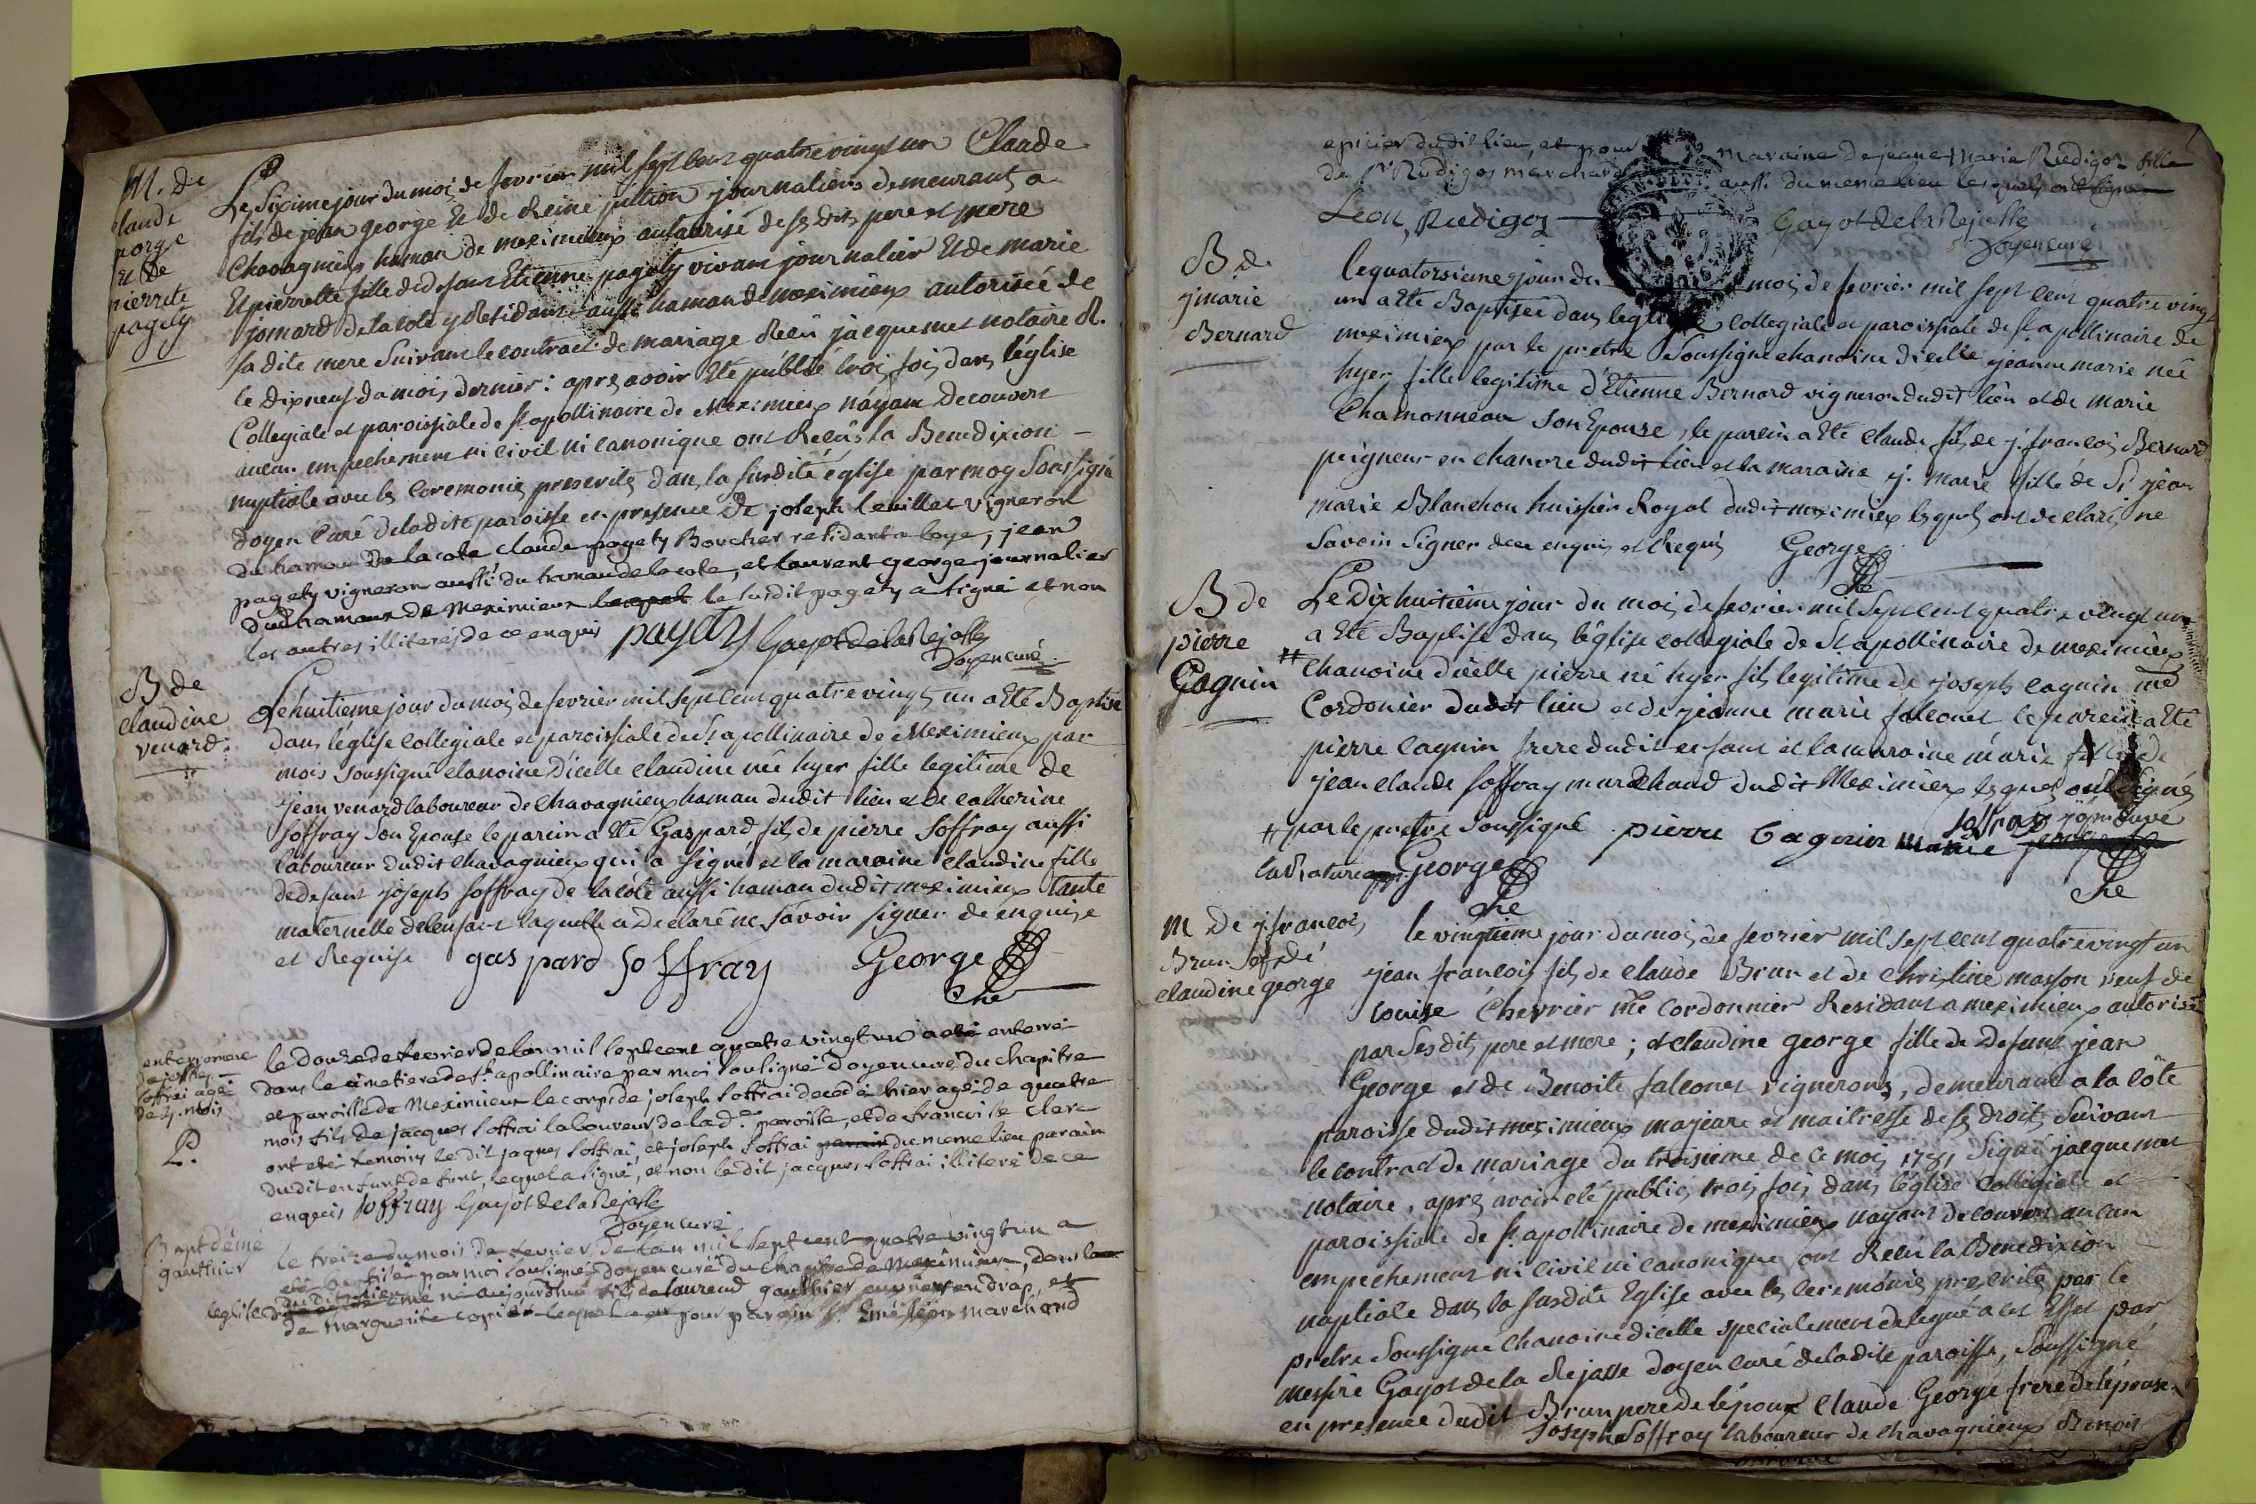 M. de
claude
george
Et de
pierrete
pagety
Le Sixime jour du moi de fevrier mil sept cent quatre vingt un Claude
fils de jean george Et de Reine jullion journaliers demeurant a
Chavagnieux haman de meximieux autaurisé de ses dits pere et mere
Et pierrette fille de defunt Etienne pagety vivant journalier Et de marie
jomard de la cote y Residants aussi haman de meximieux autorisée de
sa dite mere Suivant le contract de mariage Recu jacquemet notaire R.
le dixneuf du mois dernier: apres avoir Eté publié trois fois dans l'église
Collegiale et paroissiale de St apollinaire de Meximieux n'ayant Decouvert
aucun empechement ni civil ni canonique ont Recus la Benedixion
nuptiale avec les ceremonies prescrites dans la surdité église par moy Soussigné
doyen Curé de la dite paroisse en presence de joseph levillat vigneron
du hamau de la cote claude pagety Boucher residant a loye, jean
pagety vigneron aussi du hamau de la cote, et laurent george journalier
dudit hamaux de Meximieux lequel le susdit pagety a signé et non
les autres illiterés de ce enquis pagety Gayot de la Rejasse
Doyen curé
B de
claudine
venard
Le huitieme jour du moi de fevrier mil sept cent quatre vingt un a Eté Baptisé
dans l'eglise collegiale et paroissiale de St apollinaire de Meximieux par
mois soussigné chanoine d'icelle claudine née hyer fille legitime de
jean venard laboureur de Chavagnieux haman dudit lieu et de catherine
Soffray son Epouse le parein a Eté Gaspard fils de pierre Soffray aussi
laboureur dudit chavagnieux qui a signé et la maraine claudine fille
de defunt joseph Soffray de la côte aussi haman dudit meximieux tante
maternelle de lenfant laquelle a Declaré ne savoir signer de enquise
et Requise gaspard soffray George
Che
enterrement
de joseph
soffrai agé
de 4 mois
P.
le douze de fevrier de lan mil sept cent quatre vingt un a été enterré
dans le cimetiere de St apollinaire par moi soussigné doyen curé du chapitre
et paroisse de Meximieux le corps de joseph soffrai decedé hier agé de quatre
mois fils de jacques soffrai laboureur de lad.e paroisse, et de francoise clerc
ont eté temoins ledit jaques soffrai, et joseph soffrai parain du meme lieu parain
dudit enfant defunt, lequel a signé, et non ledit jacques soffrai illiteré de ce
enquis soffray Gayot de la Rejasse
Doyen curé
Bapt d'émé
gauthier
le treize du mois de fevrier, de lan mil sept cent quatre vingt un a
eté baptisé par moi soussigné doyen curé du chapitre de Meximieux, dans la
eglise dudit lieu émé né aujourdhui fils de laurend gauthier ouvrier en drap, et
de marguerite copier lequel a eu pour parain Sr. Emé leon marchand
epicier dudit lieu, et pour maraine dejeane Marie Rudigoz fille
de Sr Rudigoz marchand aussi du meme lieu lesquels ont signé
Leon, Rudigoz Gayot de la Rejasse
Doyen curé
B. de
jmarie
Bernard
le quatorsieme jour du mois de fevrier mil sept cent quatre vingt
un a Eté Baptisée dans leglise collegiale et paroissiale de St apollinaire de
meximieux par le pretre Soussigné chanoine d'icelle jeanne marie née
hyer fille legitime d'Etienne Bernard vigneron dudit lieu et de marie
Chamonneau son Epouse, le parein a Eté claude fils de j. francois Bernard
peigneur en chanvre dudit lieu et la maraine j. marie fille de Sr. jean
marie Blanchon huissier Royal dudit meximieux lesquels ont declaré ne
savoir signer de ce enquis et Requis George
Che
B de
pierre
Gaguin
Le Dixhuitieme jour du mois de fevrier mil Sept cent quatre vingt un
a Eté Baptisé dans l'église collegiale de St apollinaire de meximieux
# chanoine d'icelle pierre né hyer fils legitime de joseph caguin me
Cordonier dudit lieu et de jeanne marie falconet le parein a Eté
pierre caguin frere dudit enfant et la maraine marie fille de
jean claude Soffray marchand dudit Meximieux lesquels ont signés
# par le pretre Soussigné pierre Caguin marie soffray
la Rature George
Che
Che
M De j. francois
Brun et de
claudine george
le vingtieme jour du moi de fevrier mil sept cent quatre vingt un
jean francois fils de claude Brun et de Christine masson veuf de
louise Chevrier me cordonnier Residant a meximieux autorisé
par ses dits pere et mere; et claudine george fille de Defunt jean
George et de Benoite falconet vignerons, demeurant a la côte
paroisse dudit meximieux majeure et maitresse de ses droits Suivant
le contract de mariage du troisieme de ce mois 1781 Signé jacquemet
notaire, aprés avoir eté publiés trois fois dans l'église collegiale et
paroissiale de St apollinaire de meximieux nayant decouvert aucun
empechement ni civil ni canonique, ont Recu la Benedixion
nuptiale dans la susdite Eglise avec les ceremonies prescrites par le
pretre Soussigné chanoine d'icelle specialement delegué a cet Effet par
messire Gayot de la Rejasse doyen curé de la dite paroisse, Soussigné
en presence dudit Brun pere de lépoux claude George frere de l'épouse
joseph Soffray laboureur de chavagnieux Benoit